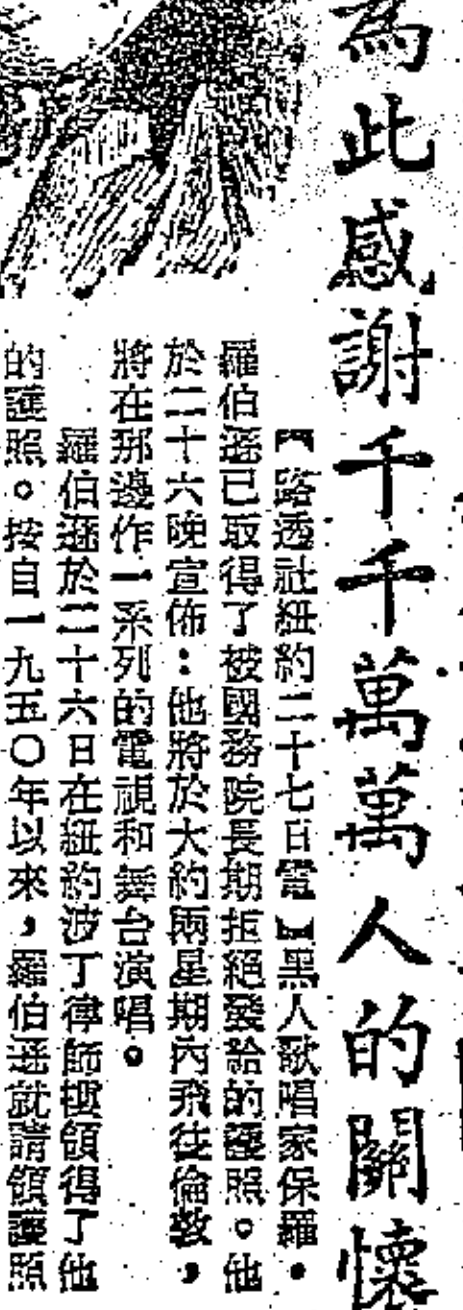 為此感謝千千萬萬人的關懷
【路透社紐約二十七日電】黑人歌唱家保羅·
羅伯遜已取得了被國務院長期拒絕發給的護照。他
於二十六晚宣佈:他將於大約兩星期內飛往倫敦,
將在那邊作一系列的電視和舞台演唱。
羅伯遜於二十六日在紐約波丁律師樓領得了他
的護照。按自一九五〇年以來,羅伯遜就請領護照